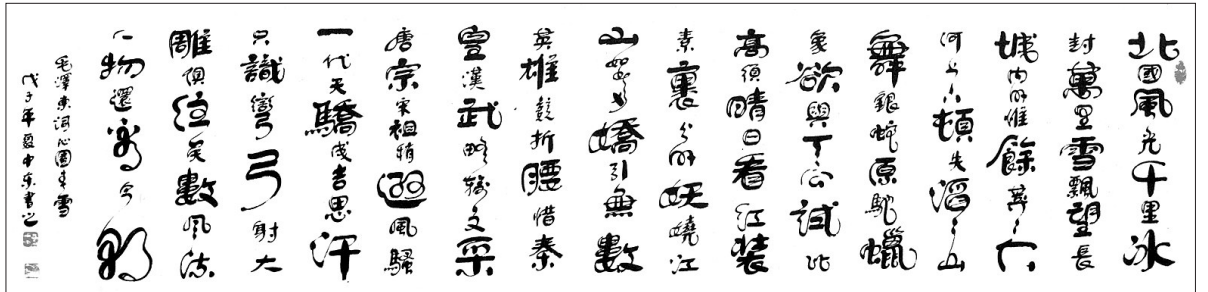 北國風光千里冰
封萬里雪飄望長
城内外惟餘莽々大
河上下頓失滔々山
舞銀蛇原馳蠟
象欲與天公試比
高須晴日看紅装
素裹分外妖嬈江
山如此多嬌引無數
英雄競折腰惜秦
皇漢武略輸文采
唐宗宋祖稍遜風騷
一代天驕成吉思汗
只識彎弓射大
雕俱往矣數風流
人物還看今朝
毛澤東詞沁園春雪
戊子年夏中东書之